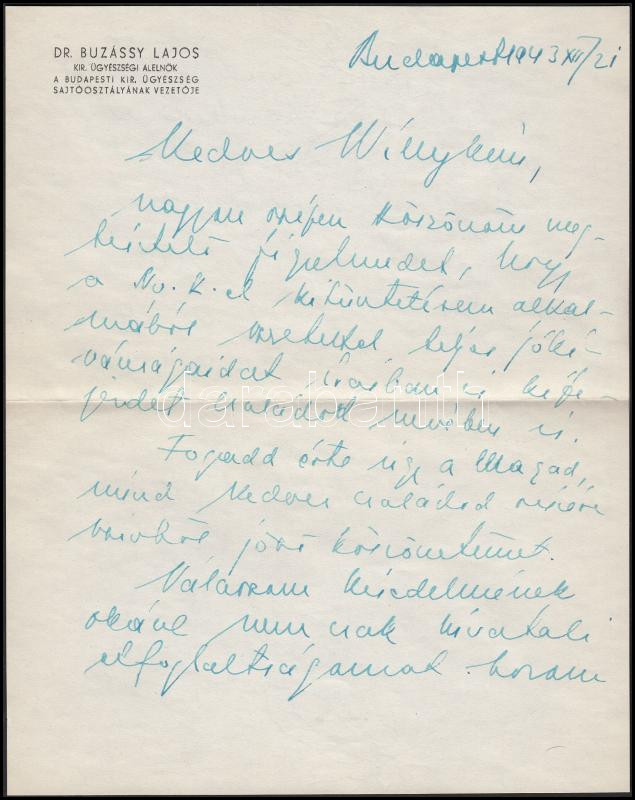 DR. BUZÁSSY LAJOS
KIR. ÜGYÉSZSÉGI ALELNÖK
A BUDAPESTI KIR. ÜGYÉSZSÉG
SAJTÓOSZTÁLYÁNAK VEZETŐJE
Budapest 1943 XII/21
Kedves Willykém,
nagyon szépen köszönöm meg-
tisztelő figyelmedet, hogy
a N. K. el kitüntetésem alkal-
mából szeretettel teljes jókí-
vánságaidat írásban is kife-
jezted családod nevében is.
Fogadd érte úgy a Magad,
mind kedves családod részére
szívből jövő köszönetemet.
Válaszom késedelmének
okául nem csak hivatali
elfoglaltságomat hozom
darabanth